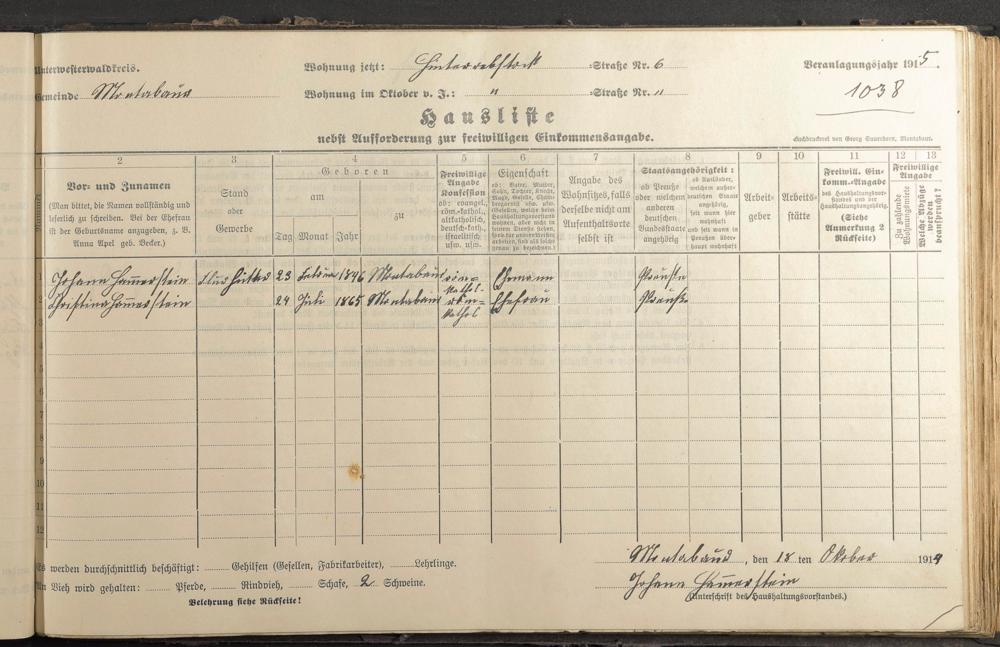 Unterwesterwaldkreis.
Wohnung jetzt: Hinterrebstock =Straße Nr. 6
Veranlagungsjahr 1915.
Gemeinde Montabaur
Wohnung im Oktober v. J.: " =Straße Nr. "
1038
Hausliste
nebst Aufforderung zur freiwilligen Einkommensangabe.
Buchdruckerei von Georg Sauerborn, Montabaur.
1 2 3 4 5 6 7 8 9 10 11 12 13
Vor= und Zunamen
(Man bittet, die Namen vollständig und
leserlich zu schreiben. Bei der Ehefrau
ist der Geburtsname anzugeben, z. B.
Anna Apel geb. Becker.)
Stand
oder
Gewerbe
Geboren
am
zu
Tag Monat Jahr
Freiwillige
Angabe
Konfession
ob: evangel.,
röm.=kathol.,
altkatholisch,
deutsch=kath.,
israelitisch
usw. usw.
Eigenschaft
Angabe des
Wohnsitzes, falls
derselbe nicht am
Aufenthaltsorte
selbst ist
Staatsangehörigkeit:
ob Preuße
oder welchem
anderen
deutschen
Bundesstaate
angehörig
ob Ausländer,
welchem außer=
deutschen Staat
angehörig,
seit wann hier
wohnhaft
und seit wann in
Preußen über=
haupt wohnhaft
Arbeit=
geber
Arbeits=
stätte
Freiwill. Ein=
komm.=Angabe
des Haushaltungsvor=
standes und der
Haushaltungsangehörig.
(Siehe
Anmerkung 2
Rückseite)
Freiwillige
Angabe
Zu zahlende
Wohnungsmiete
Welche Abzüge
werden
beansprucht?
1 Johann Hamerstein 23 1846 Montabaur röm=kathol. Ehemann Preuße
2 Christina Hamerstein 24 Juli 1865 Montabaur röm=kathol Ehefrau Preuße
3
4
5
6
7
8
9
10
11
12
Es werden durchschnittlich beschäftigt: Gehilfen (Gesellen, Fabrikarbeiter), Lehrlinge.
Montabaur, den 18 ten Oktober 1914
An Vieh wird gehalten: Pferde, Rindvieh, Schafe, 2 Schweine.
Johann Hamerstein
Belehrung siehe Rückseite!
(Unterschrift des Haushaltungsvorstandes.)